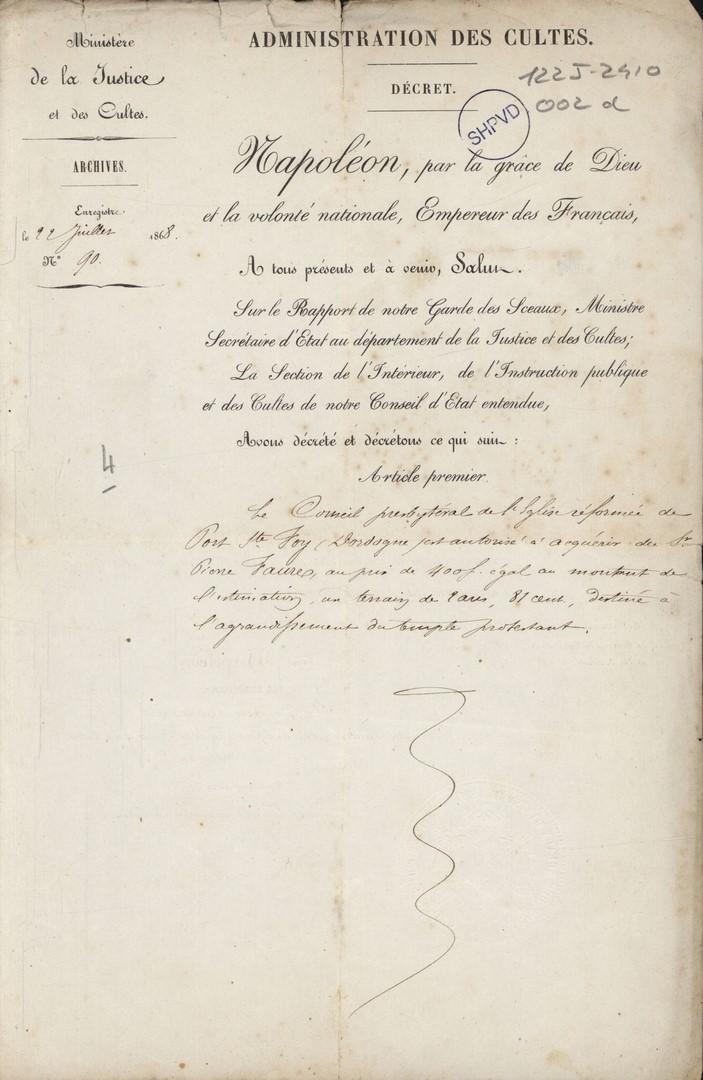 Ministère
de la Justice
et des Cultes.
ARCHIVES.
Enregistré
le 22 Juillet 1868.
N° 90.
4
ADMINISTRATION DES CULTES.
DÉCRET.
122J-2410
002 d
SHPVD
Napoléon, par la grâce de Dieu
et la volonté nationale, Empereur des Français,
A tous présents et à venir, Salut.
Sur le Rapport de notre Garde des Sceaux, Ministre
Secrétaire d'Etat au département de la Justice et des Cultes;
La Section de l'Intérieur, de l'Instruction publique
et des Cultes de notre Conseil d'Etat entendue,
Avons décrété et décrétons ce qui suit :
Article premier.
Le Conseil presbytéral de l'Eglise réformée de
Port Ste Foy (Dordogne) est autorisé à acquérir du Sr
Pierre Faure, au prix de 400f. égal au montant de
l'estimation, un terrain de 2 ares, 81 cent, destiné à
l'agrandissement du temple protestant.